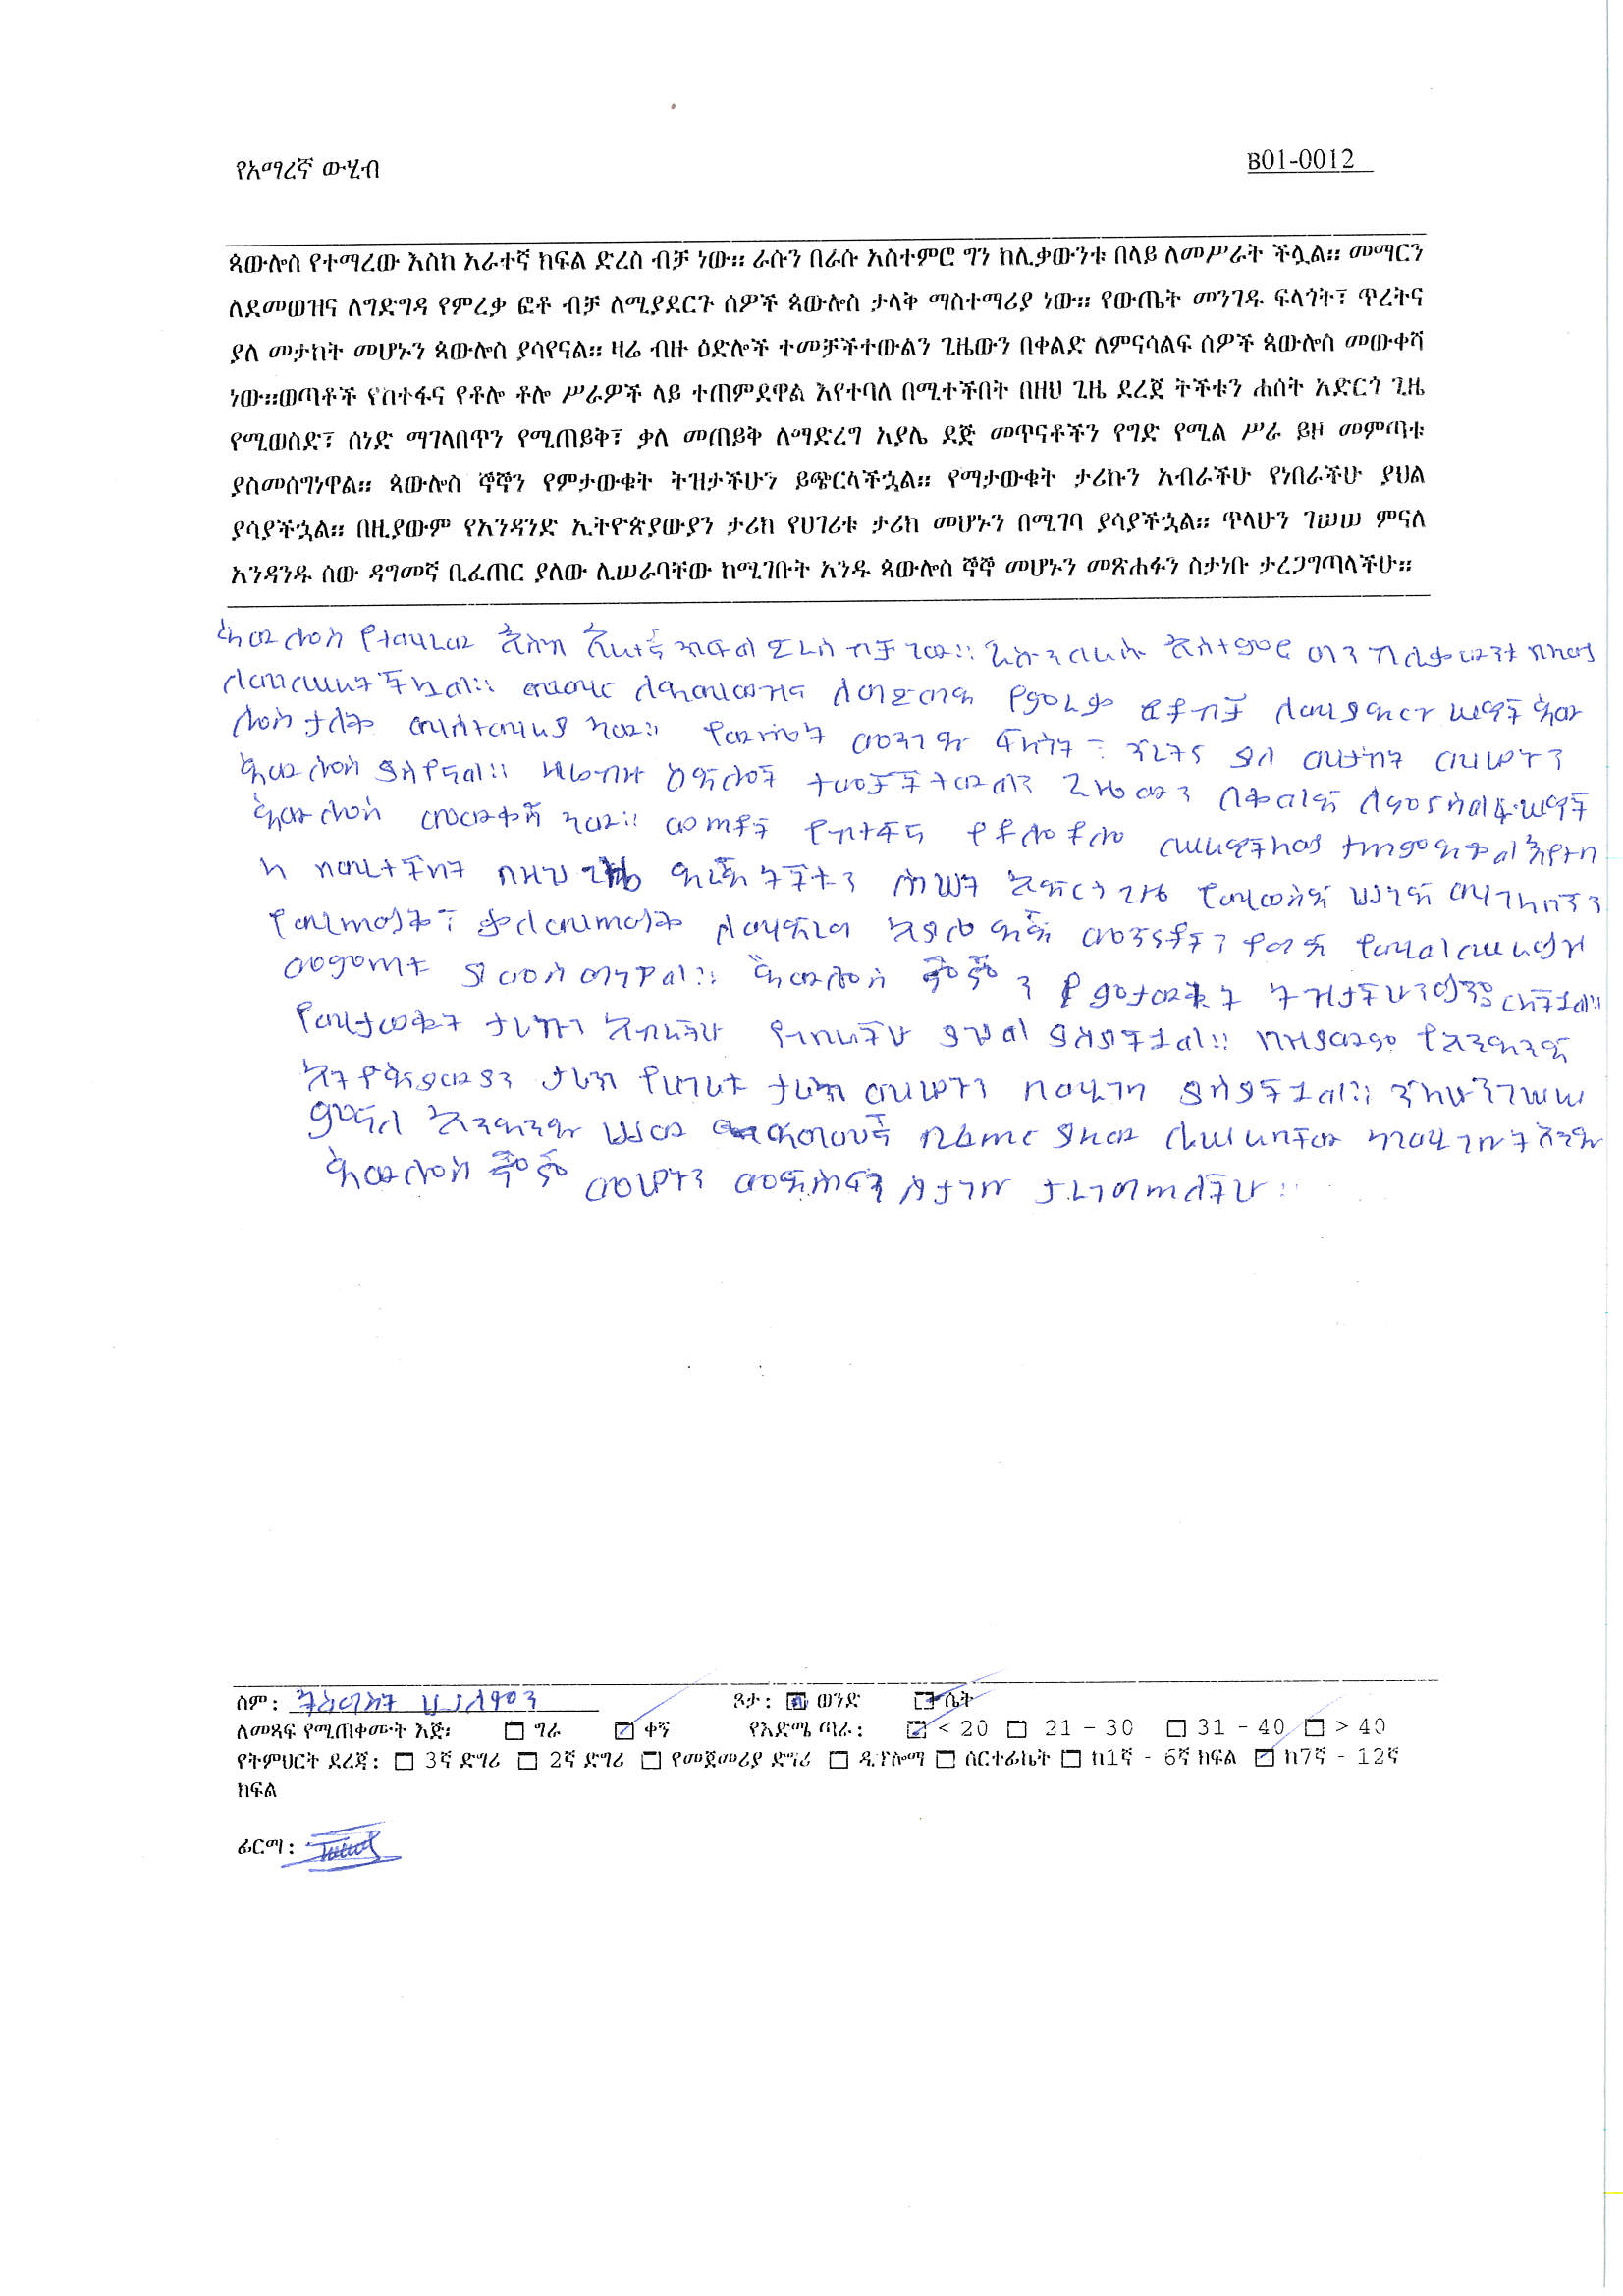 የአማረኛ ውሂብ
B01-0012
ጳውሎስ የተማረው እስከ አራተኛ ክፍል ድረስ ብቻ ነው። ራሱን በራሱ አስተምሮ ግን ከሊቃውንቱ በላይ ለመሥራት ችሏል። መማርን
ለደመወዝና ለግድግዳ የምረቃ ፎቶ ብቻ ለሚያደርጉ ሰዎች ጳውሎስ ታላቅ ማስተማሪያ ነው። የውጤት መንገዱ ፍላጎት፣ ጥረትና
ያለ መታከት መሆኑን ጳውሎስ ያሳየናል። ዛሬ ብዙ ዕድሎች ተመቻችተውልን ጊዜውን በቀልድ ለምናሳልፍ ሰዎች ጳውሎስ መውቀሻ
ነው።ወጣቶች የከተፋና የቶሎ ቶሎ ሥራዎች ላይ ተጠምደዋል እየተባለ በሚተችበት በዘህ ጊዜ ደረጀ ትችቱን ሐሰት አድርጎ ጊዜ
የሚወስድ፣ ሰነድ ማገላበጥን የሚጠይቅ፣ ቃለ መጠይቅ ለማድረግ አያሌ ደጅ መጥናቶችን የግድ የሚል ሥራ ይዞ መምጣቱ
ያስመሰግነዋል። ጳውሎስ ኞኞን የምታውቁት ትዝታችሁን ይጭርላችኋል። የማታውቁት ታሪኩን አብራችሁ የነበራችሁ ያህል
ያሳያችኋል። በዚያውም የአንዳንድ ኢትዮጵያውያን ታሪክ የሀገሪቱ ታሪክ መሆኑን በሚገባ ያሳያችኋል። ጥላሁን ገሠሠ ምናለ
አንዳንዱ ሰው ዳግመኛ ቢፈጠር ያለው ሊሠራባቸው ከሚገቡት አንዱ ጳውሎስ ኞኞ መሆኑን መጽሐፉን ስታነቡ ታረጋግጣላችሁ።
ጳውሎስ የተማረው እስከ አራተኛ ክፍል ድረስ ብቻ ነው። ራሱን በራሱ አስተምሮ ግን ከሊቃውንቱ በላይ
ለመሥራት ችሏል። መማር ለደመወዝና ለግድግዳ የምረቃ ፎቶ ብቻ ለሚያደርጉ ሠዎች ጳው
ሎስ ታላቅ ማስተማሪያ ነው። የውጤት መንገዱ ፍላጎት ፣ ጥረትና ያለ መታከት መሆኑን
ጳውሎስ ያሳየናል። ዛሬ ብዙ ዕድሎች ተመቻችተውልን ጊዜውን በቀልድ ለምናሳልፍ ሠዎች
ጳውሎስ መውቀሻ ነው። ወጣቶች የከተፋና የቶሎ ቶሎ ሥራዎች ላይ ተጠምዳዋል እየተባ
ለ በሚተችበት በዚህ ጊዜ ደረጀ ትችቱን ሐሠት አድርጎ ጊዜ የሚወስድ ሠነድ ማገላበጥን
የሚጠይቅ፣ ቃለ መጠይቅ ለማድረግ አያሌ ደጅ መጥናቶችን የግድ የሚል ሥራ ይዞ
መምጣቱ ያመስግነዋል። ጳውሎስ ኞኞ ን የምታውቁት ትዝታችሁን ይጭርላችኋል።
የማታውቁት ታሪኩን አብራችሁ የነበራችሁ ያህል ያሳያችኋል። በዚያውም የአንዳንድ
ኢትዮጵያውያን ታሪክ የሀገሪቱ ታሪክ መሆኑን በሚገባ ያሳያችኋል። ጥላሁን ገሠሠ
ምናለ አንዳንዱ ሠው ዳግመኛ ቢፈጠር ያለው ሊሠራባቸው ከሚገቡት አንዱ
ጳውሎስ ኞኞ መሆኑን መጽሐፉን ስታነቡ ታረጋግጣላችሁ።
ስም: ፆታ: ወንድ ሴት
ለመጻፍ የሚጠቀሙት እጅ፡ ግራ ቀኝ የእድሜ ጣራ: < 20 21 - 30 31 - 40 > 40
የትምህርት ደረጃ: 3ኛ ድግሪ 2ኛ ድግሪ የመጀመሪያ ድግሪ ዲፕሎማ ሰርተፊኬት ከ1ኛ - 6ኛ ክፍል ከ7ኛ - 12ኛ
ክፍል
ፊርማ: